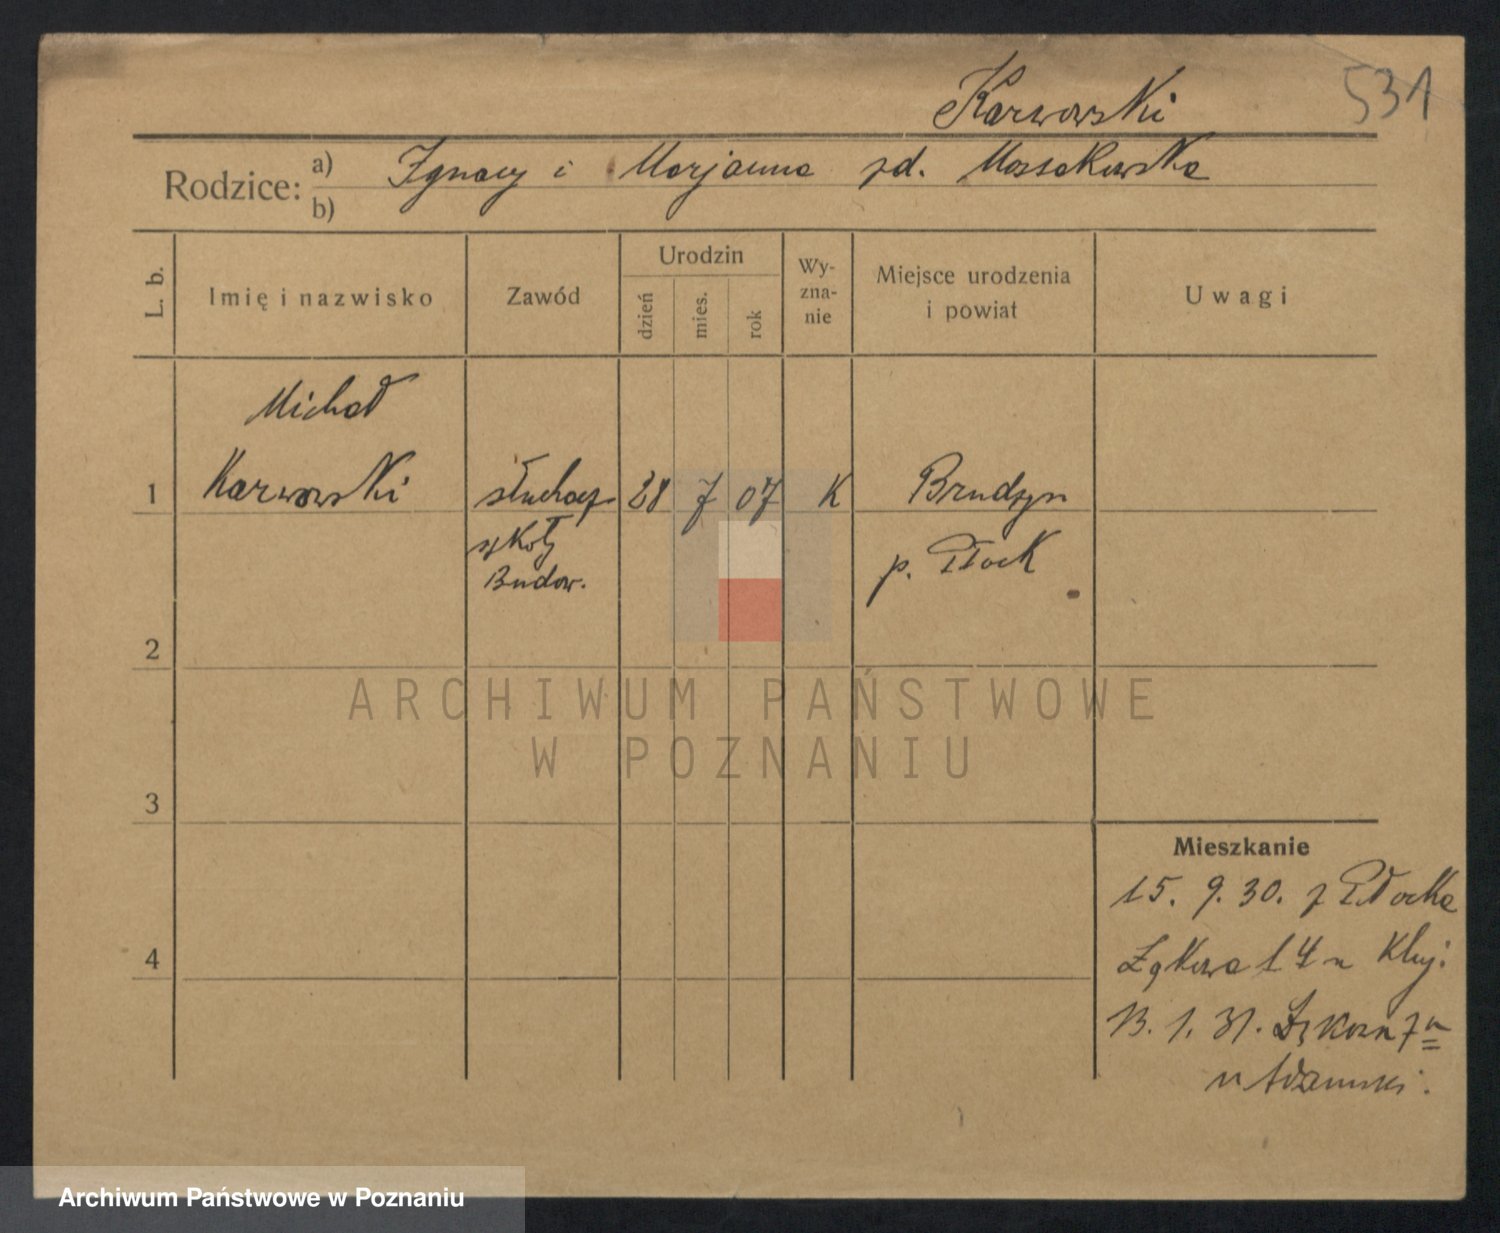 Karwowski
531
Rodzice: a) Ignacy i Marjanna zd. Mossakowska
b)
L. b.
Imię i nazwisko
Zawód
Urodzin
dzień
mies.
rok
Wy-
zna-
nie
Miejsce urodzenia
i powiat
Uwagi
Michał
1 Karwowski słuchacz 28 7 07 K Brudzyn
szkoły
Budow.
p. Płock
2
3
4
Mieszkanie
15. 9. 30. z Płocka
Łąkowa 14 u
13. 1. 31.
u Adamski.
ARCHIWUM PAŃSTWOWE
W POZNANIU
Archiwum Państwowe w Poznaniu